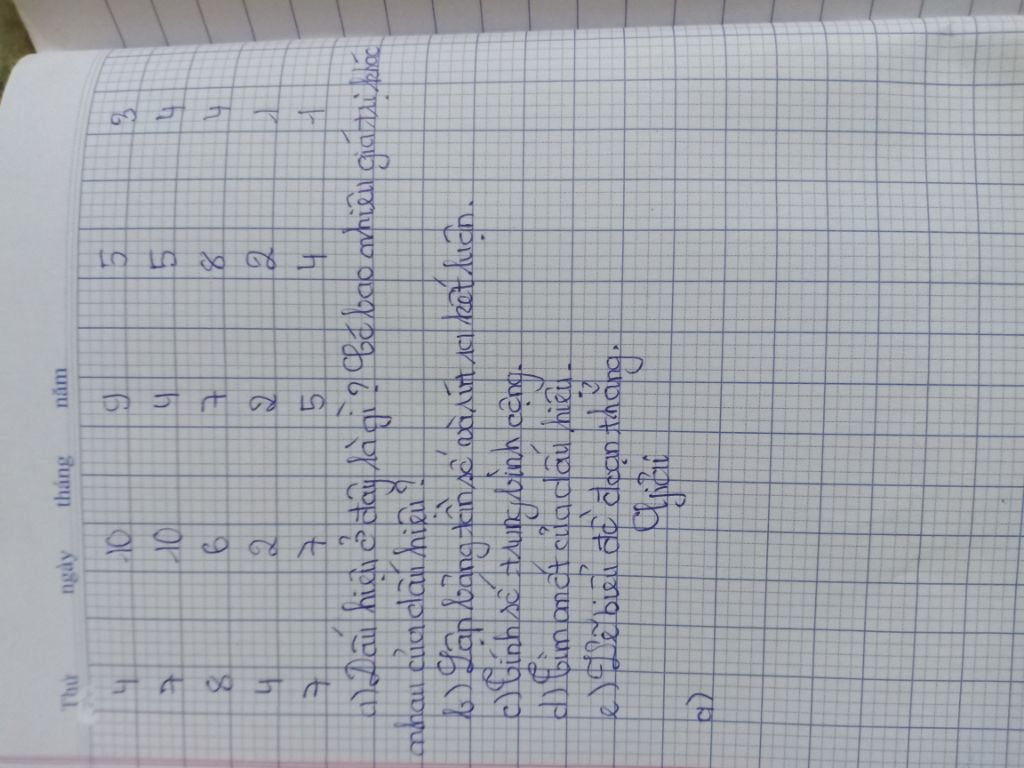 Thứ ngày tháng năm
4 10 9 5 3
7 10 4 5 4
8 6 7 8 4
4 2 2 2 1
7 7 5 4 1
a) Dấu hiệu ở đây là gì? Có bao nhiêu giá trị khác
nhau của dấu hiệu?
b) Lập bảng tần số và rút ra kết luận.
c) Tính số trung bình cộng.
d) Tìm mốt của dấu hiệu.
e) Vẽ biểu đồ đoạn thẳng.
Giải
a)